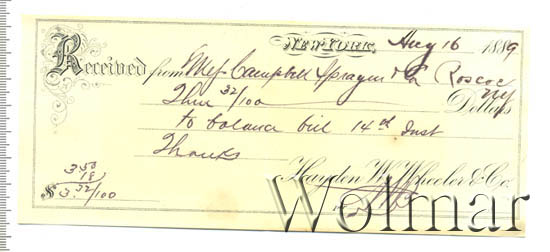 New-York, Aug 16 1889
Received from Mess Campbell Sprague & Co Roscoe
NY
Three 32/100 Dollars
to balance bill 14th Inst
Thanks
3.50
18
$ 3.32/100
Hayden W. Wheeler & Co.
Wolmar